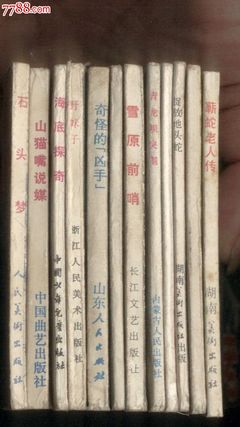 7788.com
石头梦
人民美术出版社
山猫嘴说媒
中国曲艺出版社
海底探奇
中国少年儿童出版社
野妹子
浙江人民美术出版社
奇怪的“凶手”
山东人民出版社
雪原前哨
长江文艺出版社
内蒙古人民出版社
捉放地头蛇
湖南美术出版社
蕲蛇老人传
湖南美术出版社